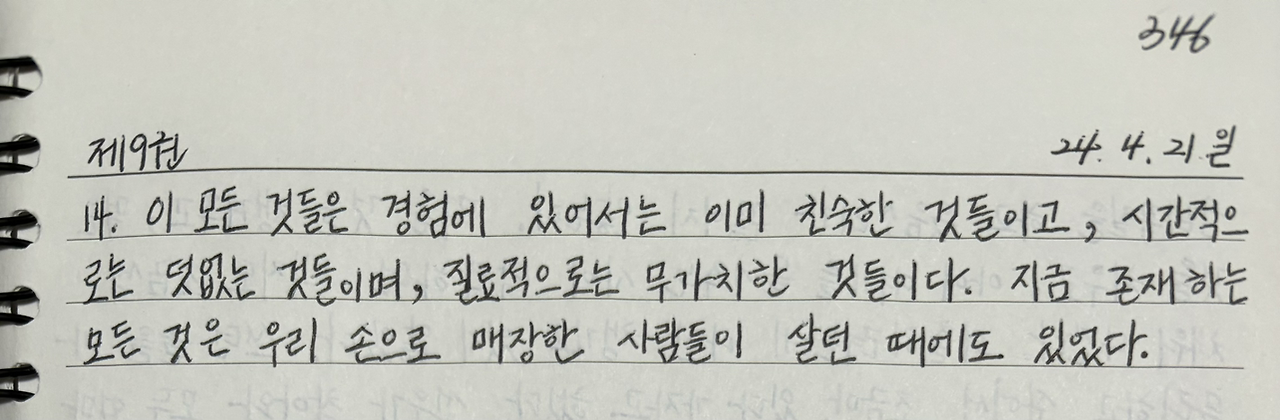 346
제9권 24. 4. 21 일
14. 이 모든 것들은 경험에 있어서는 이미 친숙한 것들이고, 시간적으
로는 덧없는 것들이며, 질료적으로는 무가치한 것들이다. 지금 존재하는
모든 것은 우리 손으로 매장한 사람들이 살던 때에도 있었다.